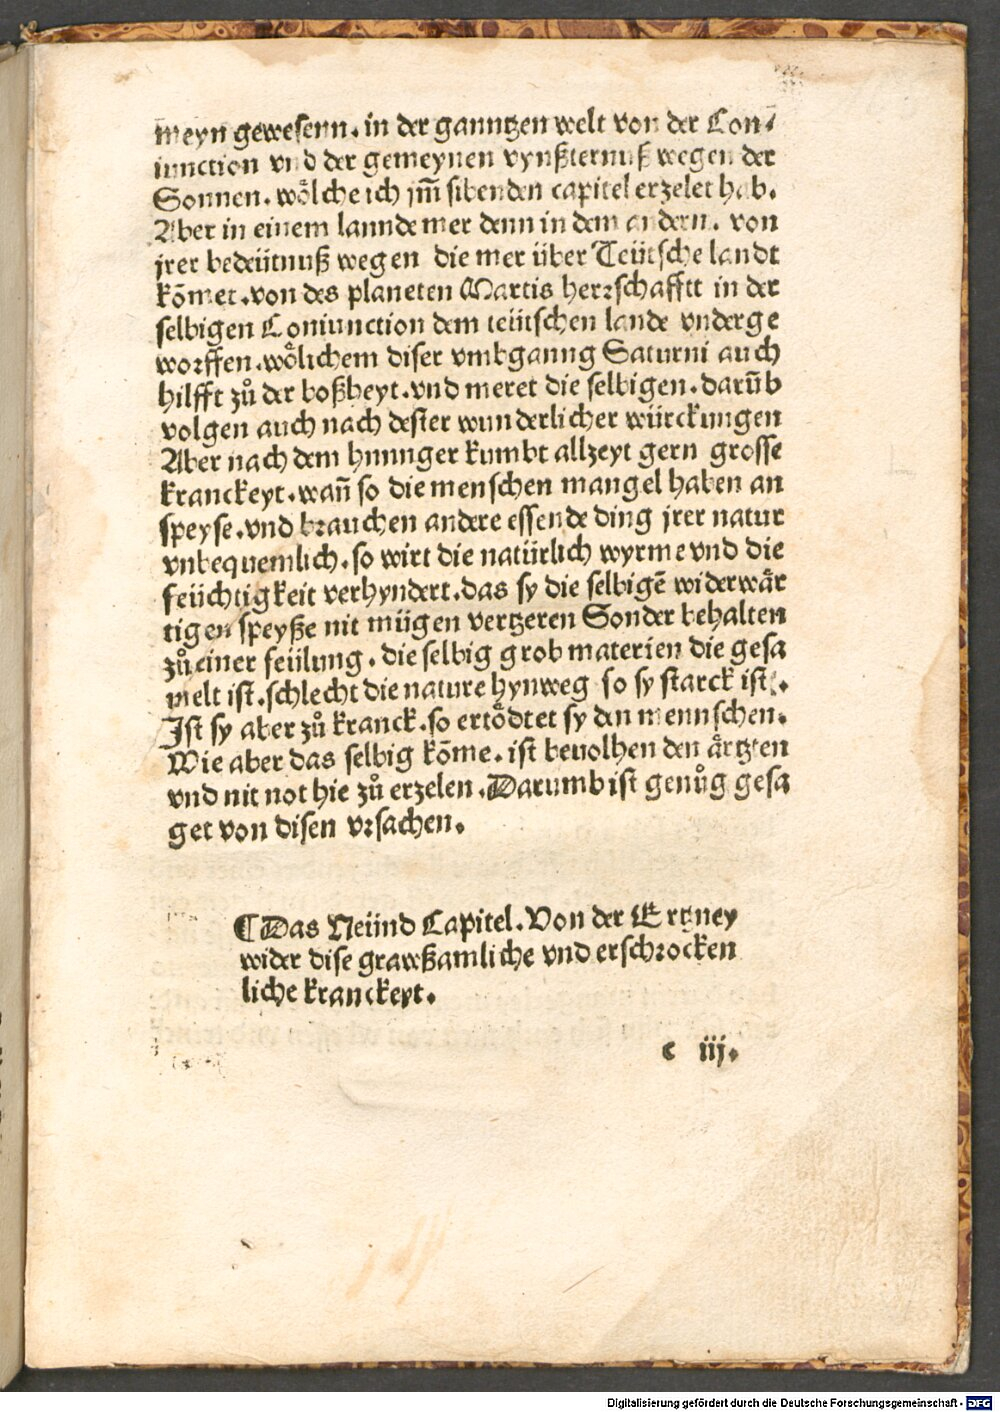 meyn gewesenn. in der ganntzen welt von der Con⸗
iunction vnd der gemeynen vynßternuß wegen der
Sonnen. woͤlche ich jm̃ sibenden capitel erzelet hab.
Aber in einem lannde mer denn in dem andern. von
jrer bedeütnuß wegen die mer über Teütsche landt
kōmet. von des planeten Martis herꝛschafftt in der
selbigen Coniunction dem teütschen lande vnderge
woꝛffen. woͤlichem diser vmbganng Saturni auch
hilfft zuͦ der boßheyt. vnd meret die selbigen. darūb
volgen auch nach dester wunderlicher würckungen
Aber nach dem hunnger kumbt allzeyt gern grosse
kranckeyt. wañ so die menschen mangel haben an
speyse. vnd bꝛauchen andere essende ding jrer natur
vnbequemlich. so wirt die natürlich wyrme vnd die
feüchtigkeit verhyndert. das sy die selbigē widerwaͤr
tigen speyße nit mügen vertzeren Sonder behalten
zuͦ einer feülung. die selbig grob materien die gesa
melt ist. schlecht die nature hynweg so sy starck ist.
Ist sy aber zuͦ kranck. so ertoͤdtet sy den mennschen.
Wie aber das selbig kōme. ist beuolhen den aͤrtzten
vnd nit not hie zuͦ erzelen. Darumb ist genuͦg gesa
get von disen vꝛsachen.
¶ Das Neünd Capitel. Von der Ertzney
wider dise grawßamliche vnd erschꝛocken
liche kranckeyt.
c iij.
Digitalisierung gefördert durch die Deutsche Forschungsgemeinschaft - DFG